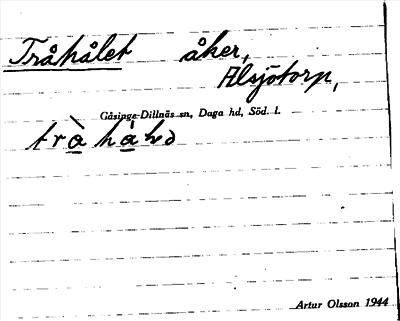 Tråhålet åker,
Alsjötorp,
Gåsinge-Dillnäs sn, Daga hd, Söd. l.
Artur Olsson 1944